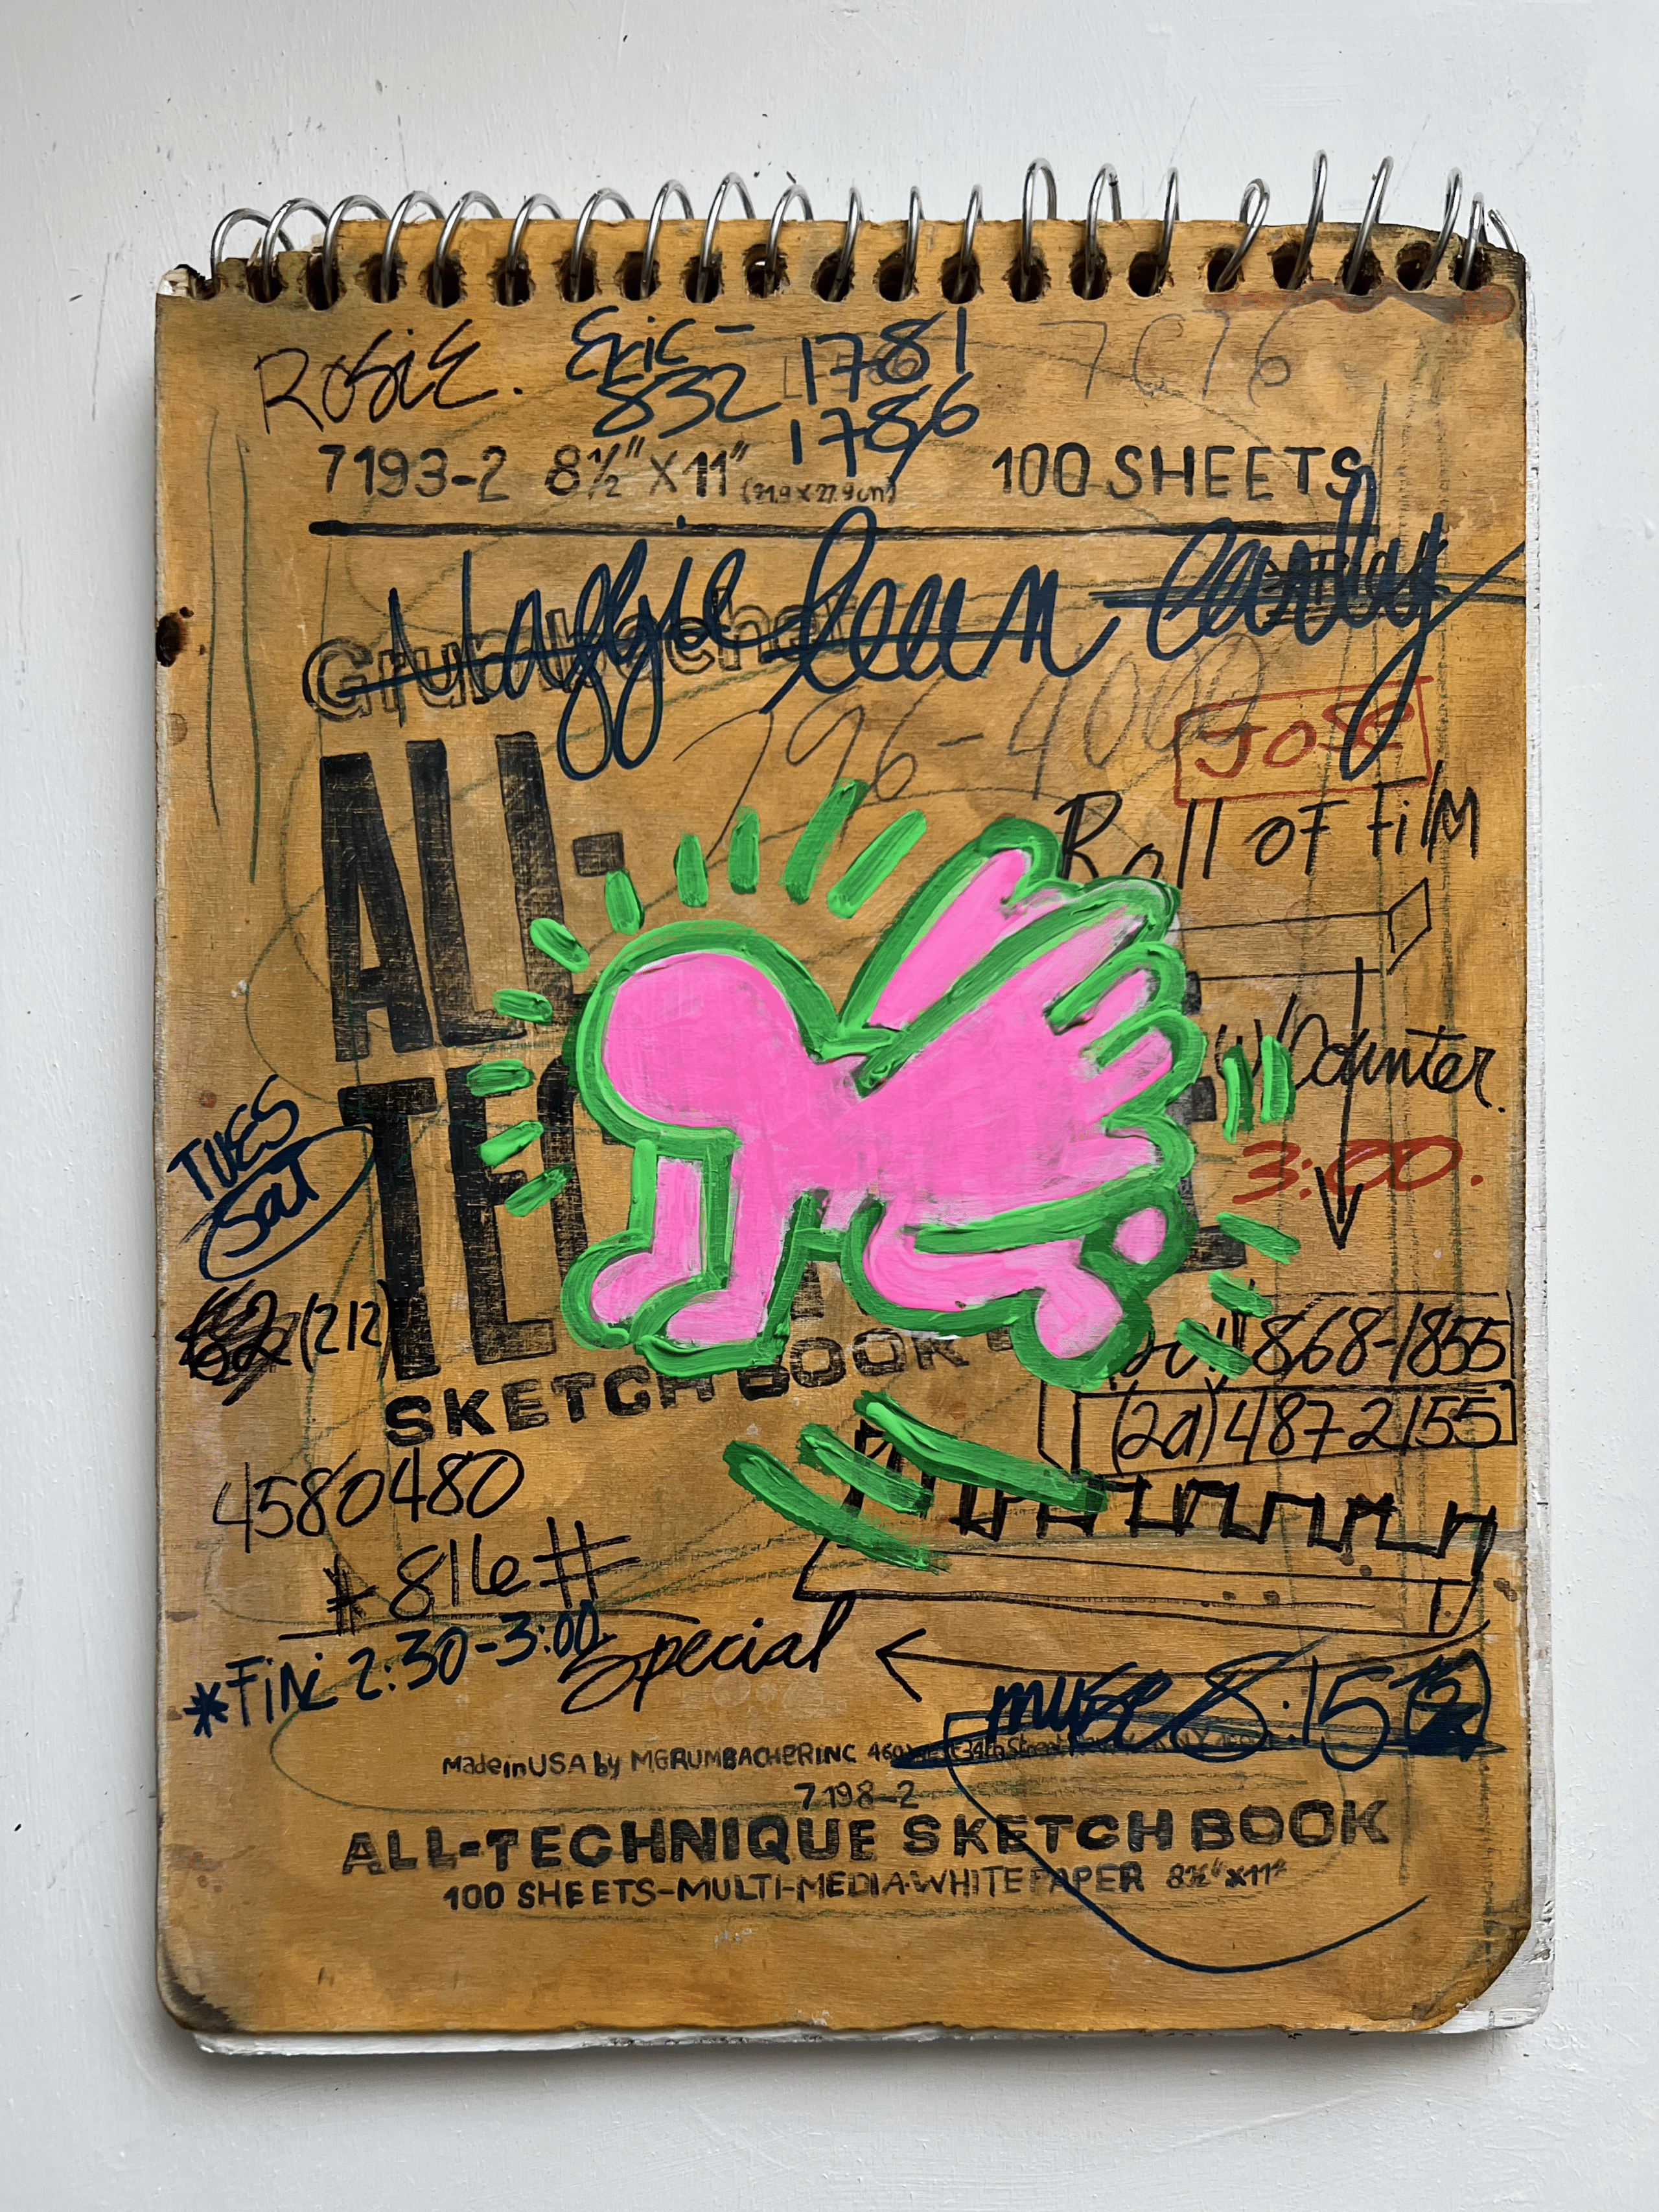 ROSiE.
Eric-
832
1781
1786
7C76
7193-2 8½" X 11" (21.9 X 27.9 cm) 100 SHEETS
Grumbacher
796-4000
JOSE
Roll OF FilM
ALL-
TEC
W/Counter.
3:00.
TUES
SAT
(212)
868-1855
SKETCH BOOK
(2a) 487 2155
4580480
#816#
*FiNi 2:30-3:00
Special
muse 8:15
Made in USA by M.GRUMBACHER INC 460 West 34th Street
7198-2
ALL-TECHNIQUE SKETCH BOOK
100 SHEETS-MULTI-MEDIA-WHITE PAPER 8½" x 11"